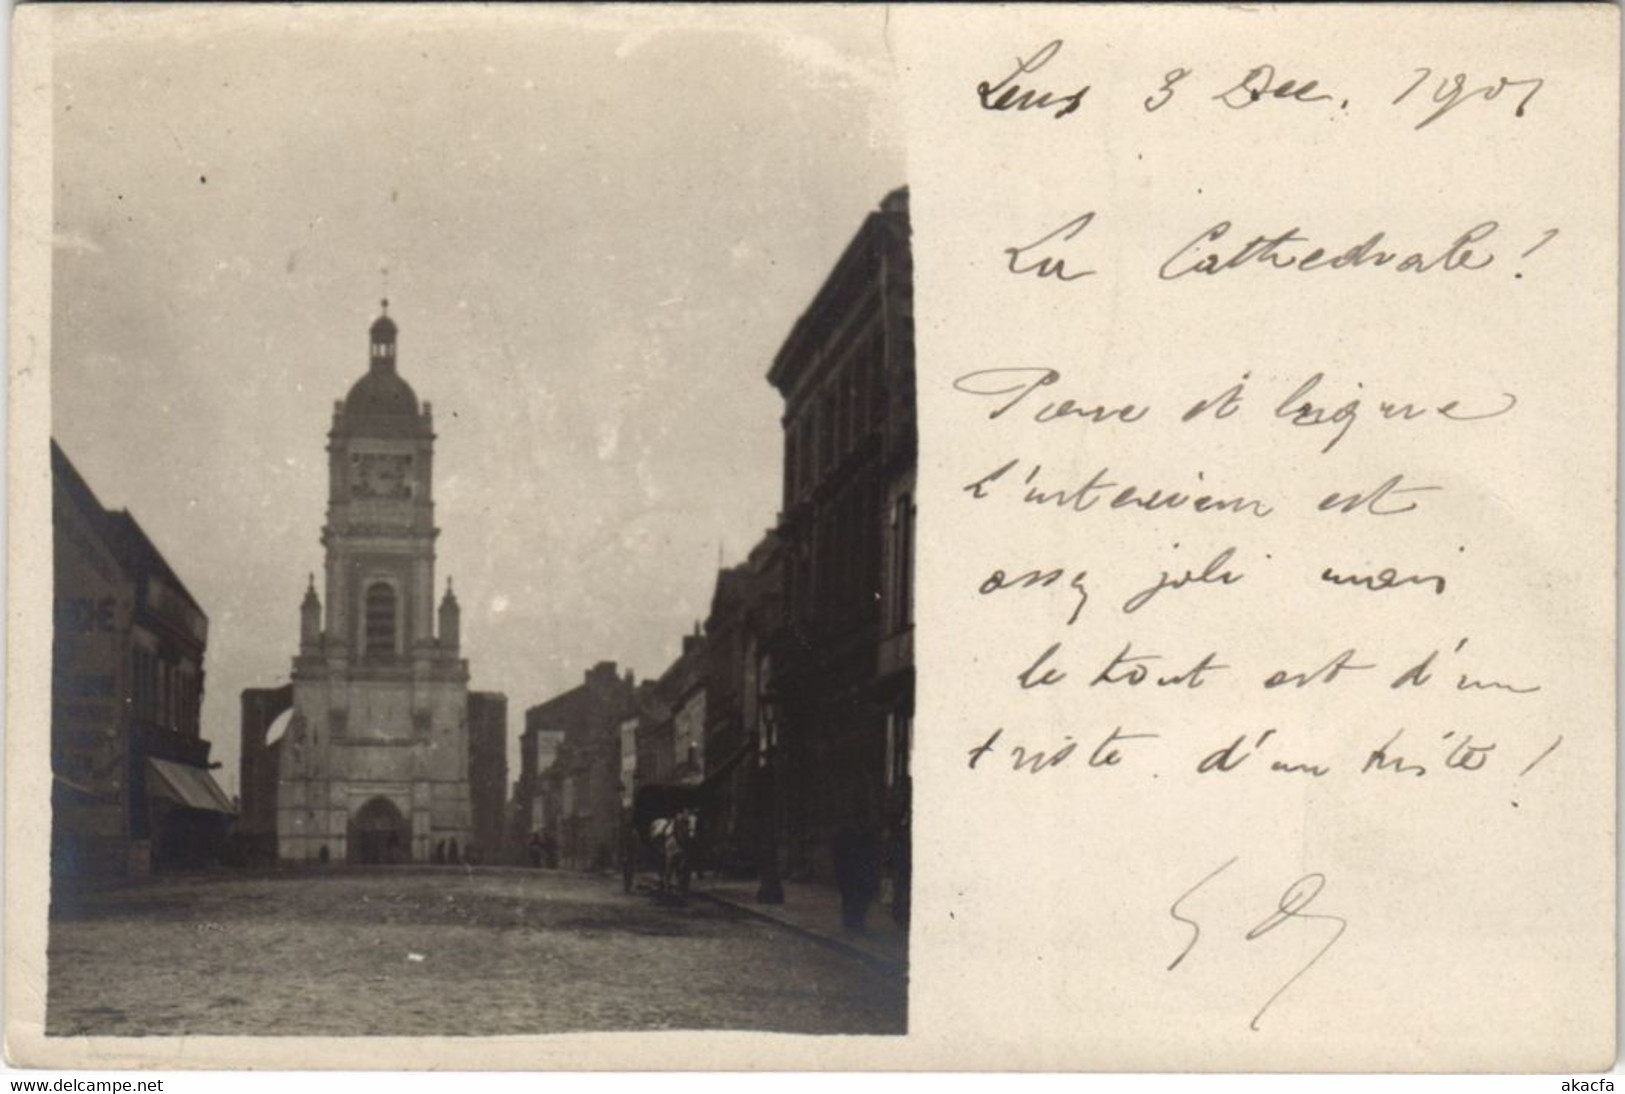 Lens 3 Dec. 1901
La Cathedrale!
Pierre et brique
L'interieur est
assez joli mais
le tout est d'un
triste. d'un triste!
www.delcampe.net
akacfa